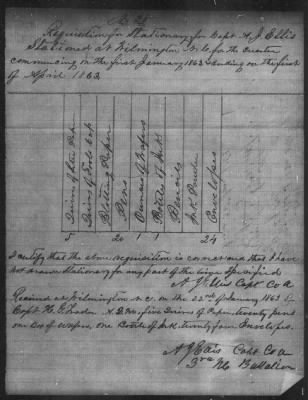 No 24
Requisition for Stationary for Capt A. J. Ellis
Stationed at Wilmington N.C. for the quarter
commencing on the first January 1863 & ending on the first
of April 1863
Quires of Letter Paper
Quires of Fools Cap
Blotting Paper
Pens
Ounces of Wafers
Bottles of Ink
Pencils
Ink Powder
Envelopes
5 20 1 1 24
I certify that the above requisition is correct and that I have
not drawn Stationary for any part of the time Specified
A. J. Ellis Capt Co A
Received at Wilmington N.C. on the 23rd of January 1863 of
Capt H. E. A.Q.M. five Quires of Paper, twenty pens
one Box of wafers, one Bottle of Ink twenty four Envelopes.
A J Ellis Capt Co A
3rd NC Battalion